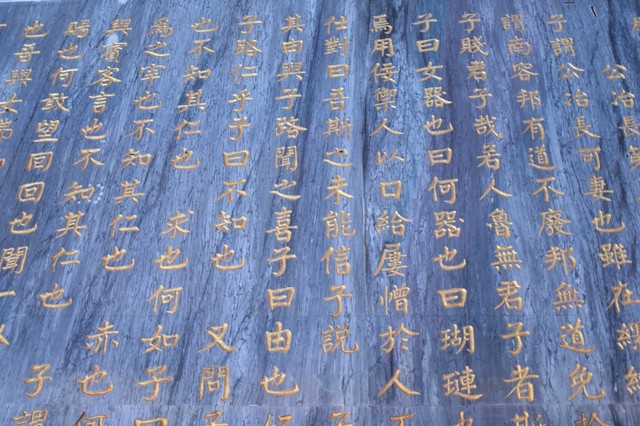 公冶長第
子謂公冶長可妻也雖在縲絏
謂南容邦有道不廢邦無道免於
子賤君子哉若人魯無君子者斯
子曰女器也曰何器也曰瑚璉也
焉用佞禦人以口給屢憎於人不
仕對曰吾斯之未能信子說 子
其由與子路聞之喜子曰由也
子路仁乎子曰不知也 又問子
也不知其仁也 求也何如子曰
為之宰也不知其仁也 赤也何
與賓客言也不知其仁也 子謂
賜也何敢望回回也聞一以
也吾與女